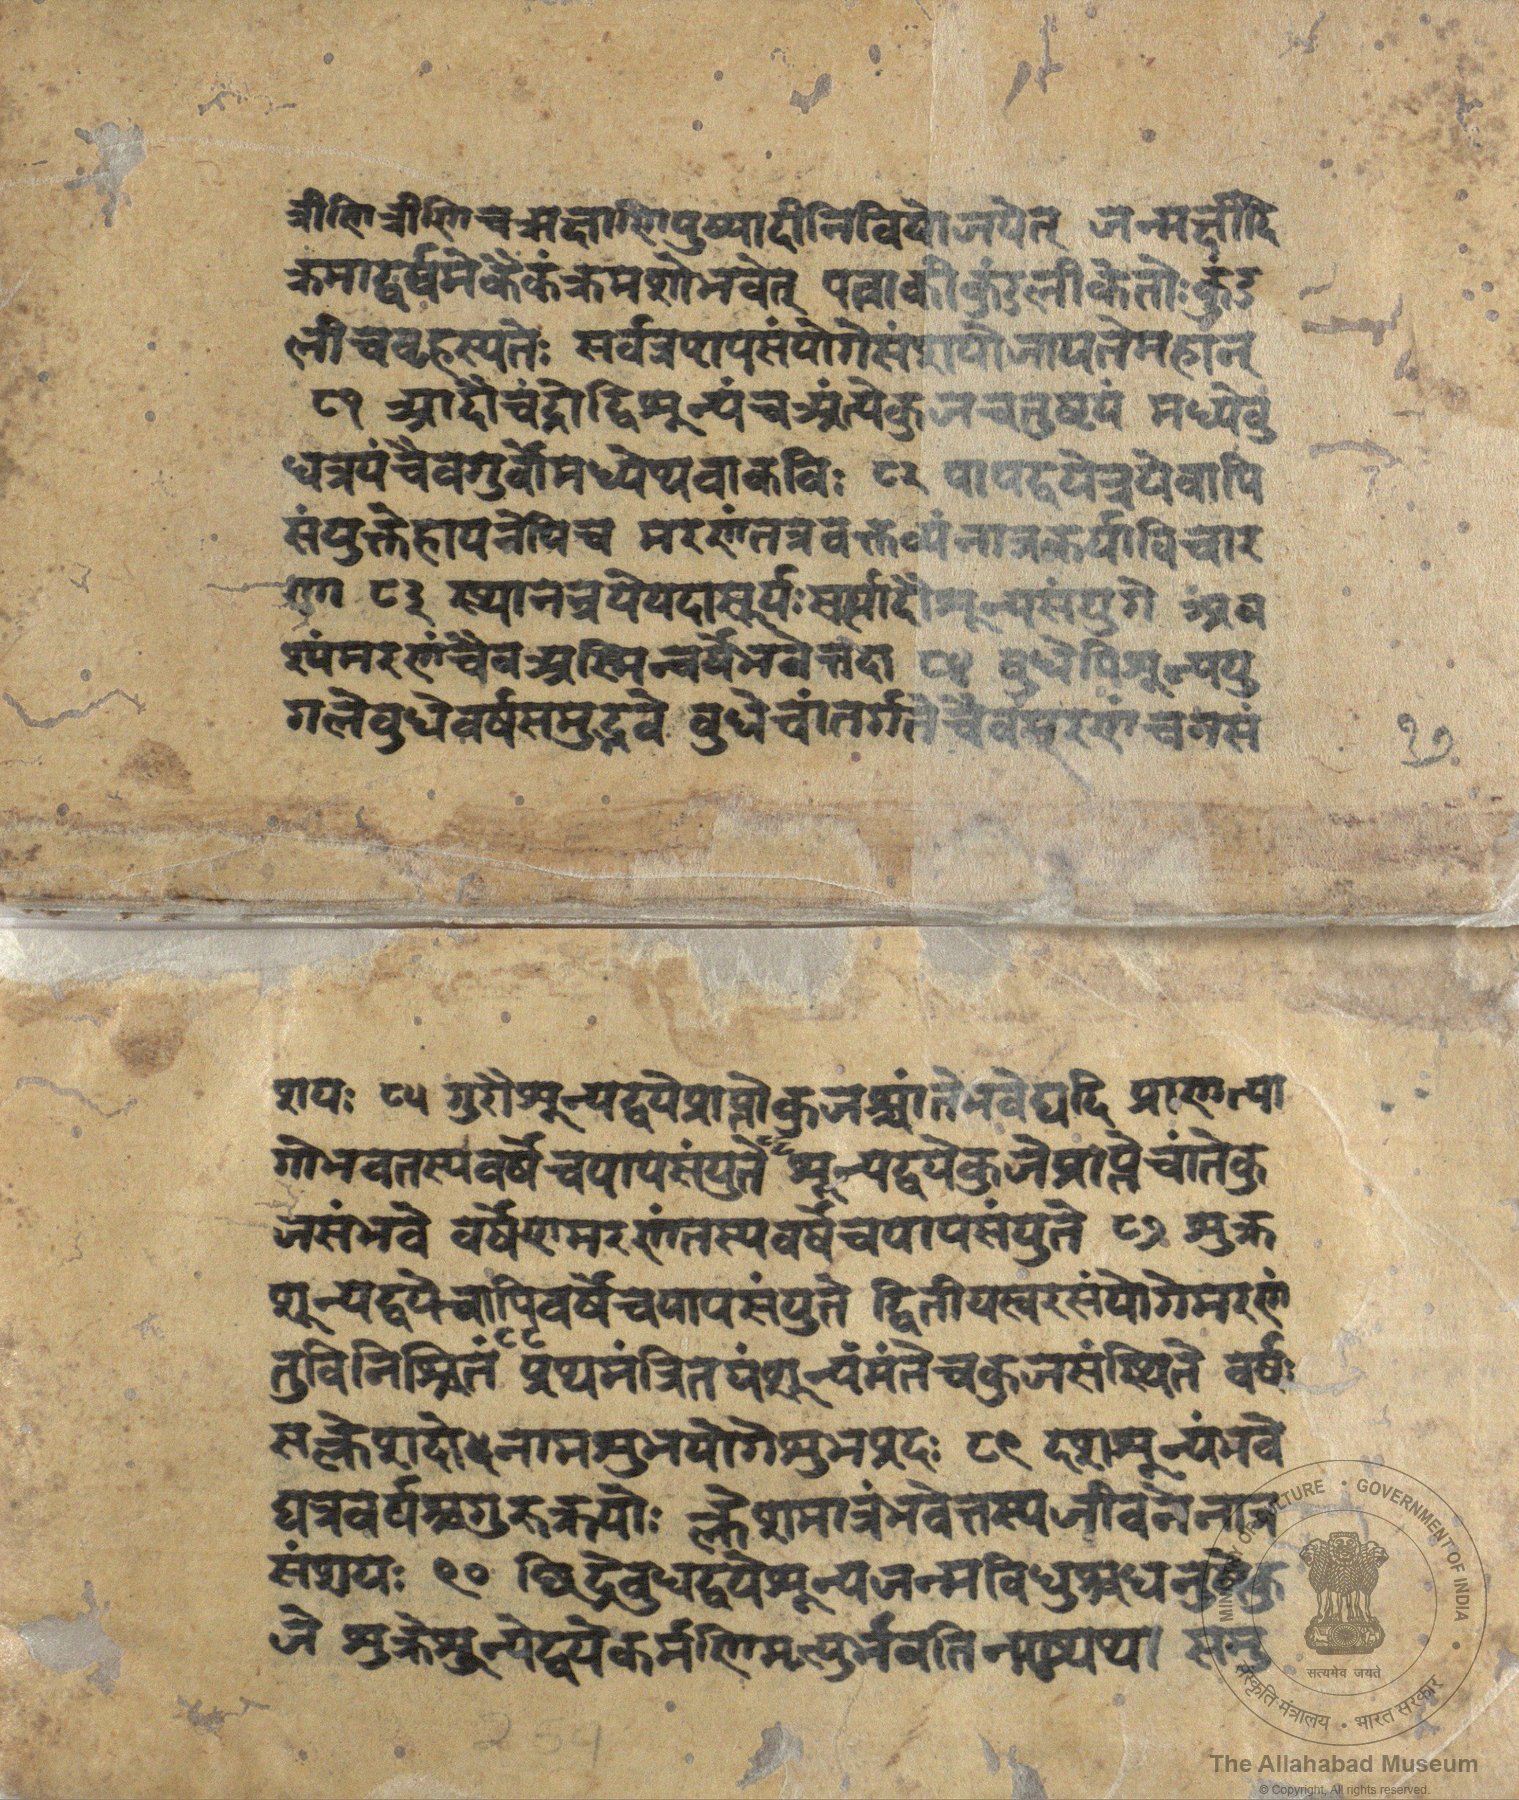 त्रीणि त्रीणि च मघाणि पुष्यादीनि वियोजयेत् जन्मर्क्षादि
क्रमाद्वर्षमेकैकं क्रमशो भवेत् पताकी कुंडली केतोः कुंड
ली च बृहस्पतेः सर्वत्र पापसंयोगे संशयो जायते महान्
८१ आदौ चंद्रो द्विशून्यं च अंत्ये कुजचतुष्टयं मध्ये बु
धत्रयं चैव गुर्वोमध्येथवा कविः ८२ पापद्वयेत्रयेवापि
संयुक्तेहायनेपिच मरणंतत्रवक्तव्यंनात्रकार्याविचार
णा ८३ स्थानत्रयेयदासूर्यःसूर्यादौशून्यसंयुगे अव
श्यंमरणंचैवअस्मिन्वर्षेभवेत्तदा ८४ बुधेपिशून्ययु
गलेबुधेवर्षसमुद्भवे बुधेचांतर्गतेचैवमरणंचनसं
१७
शयः ८५ गुरौशून्यद्वयेप्राप्तेकुजश्चांतेभवेद्यदि प्राणत्या
गोभवतस्यवर्षेचपापसंयुते ८६ शून्यद्वयेकुजेप्राप्तेचांतेकु
जसंभवे वर्षेणमरणंतस्यवर्षेचपापसंयुते ८७ शुक्र
शून्यद्वयेचापिवर्षेचपापसंयुते द्वितीयस्वरसंयोगेमरणं
तुविनिश्चितं ८८ प्रथमंत्रितयंशून्यंमंतेचकुजसंस्थिते वर्षः
सक्लेशदोधनामशुभयोगेशुभप्रदः ८९ दशशून्यंभवे
द्यत्रवर्षेश्चगुरूक्रयोः क्लेशमात्रंभवेत्तस्यजीवनेनात्र
संशयः ९० छिद्रेबुधद्वयेशून्यजन्मविधु
जे शुक्रेशून्येद्वयेकर्मणिमृत्युर्भवति
254
MINISTRY OF CULTURE • GOVERNMENT OF INDIA
सत्यमेव जयते
संस्कृति मंत्रालय • भारत सरकार
The Allahabad Museum
© Copyright, All rights reserved.